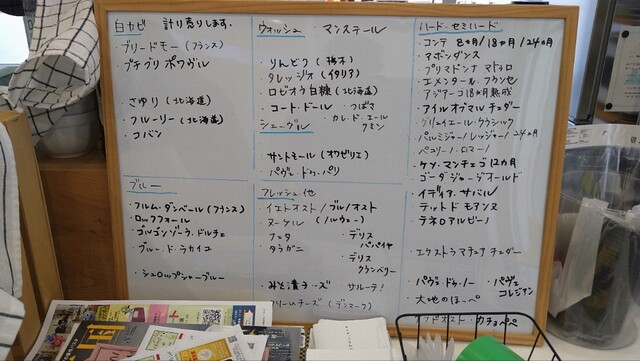 白カビ 計り売りします.
・ブリードモー(フランス)
・プチグリ ポワヴル
・さゆり(北海道)
・フルーリー(北海道)
・コバン
ブルー
・フルム・ダンベール(フランス)
・ロックフォール
・ゴルゴンゾーラ・ドルチェ
・ブルー・ド・ラカイユ
・シュロップシャーブルー
ウォッシュ マンステール
・りんどう(栃木)
・タレッジオ(イタリア)
・ロビオラ
・コート・ドール ・つばさ
・カレ・ド・エール
クミン
シェーブル
・サントモール(オワゼリエ)
・パヴェ・ドゥ・パリ
フレッシュ他
・イエトオスト/ブルノオスト
(ノルウェー)
・フェタ ・デリス
パパイヤ
・デリス
クランベリー
・みそ漬チーズ ・サルーテ!
クリームチーズ(デンマーク)
ハード・セミハード
・コンテ 8ヵ月/18ヵ月/24ヵ月
・アボンダンス
・プリマドンナ マトゥロ
・エメンタール・フランセ
・アジアーゴ18ヵ月熟成
・アイルオブマル チェダー
・グリュイエール・クラシック
・パルミジャーノ レッジャーノ 24ヵ月
・ペコリーノ・ロマーノ
・ケソ・マンチェゴ 12ヵ月
・ゴーダ・ジャージーオールド
・イディアサバル
・テット ド モアンヌ
・テネロアルピーノ
・エクストラ マチュア チェダー
・パヴェ・ドゥ・ノー ・パヴェ
コレジアン
・大地のほっぺ
・カチョっぺぺ